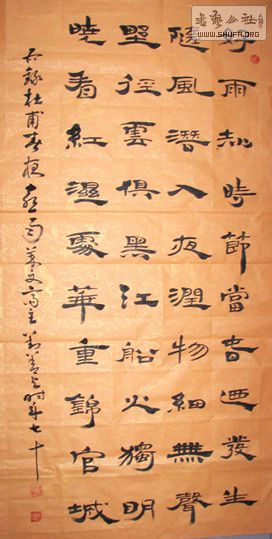 書藝公社
WWW.SHUFA.ORG
好雨知時節當春迺發生
隨風潛入夜潤物細無聲
野徑雲俱黑江船火獨明
曉看紅濕處華重錦官城
右錄杜甫春夜喜雨 時年七十